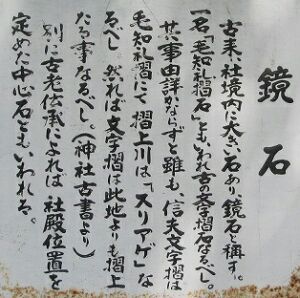 鏡石
古来、社境内に大きい石あり鏡石と称す。
一名「毛知礼摺石」ともいわれ古の文字摺石なるべし。
其事由詳かならずと雖も、信夫文字摺は
毛知礼摺にて摺上川は「スリアゲ」な
るべし 然れば文字摺は此地よりも摺上
たる事なるべし。(神社古書より)
別に古老伝承によれば 社殿位置を
定めた中心石ともいわれる。